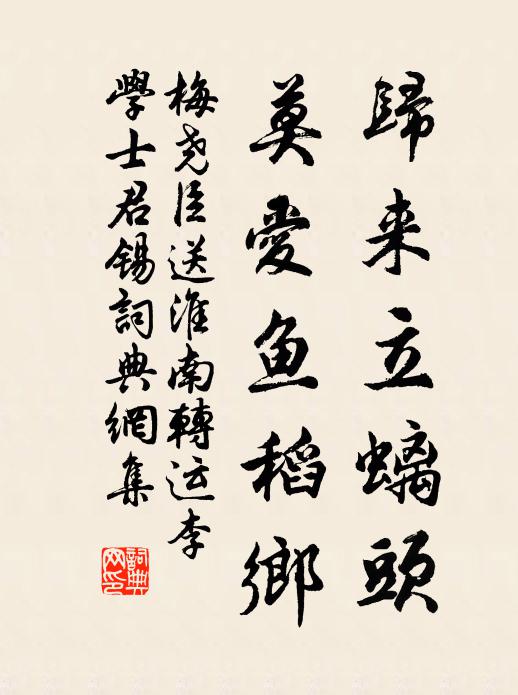 歸来立螭頭
莫愛鱼稻鄉
梅尧臣送淮南轉运李
學士君锡詞典網集
詞典网印